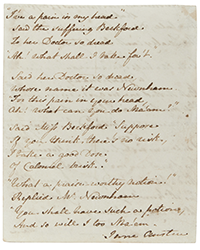 "I've a pain in my head"
Said the suffering Beckford,
To her Doctor so dread.
"Ah! what shall I take for't."
Said her Doctor so dread,
Whose name it was Newnham.
For this pain in your head,
Ah! What can you do Ma'am?"
Said Miss Beckford "Suppose
If you think there's no risk,
I take a good Dose
Of Calomel, brisk."
"What a praise-worthy notion"
Replied Mr. Newnham
"You shall have such a potion,
And so will I too Ma'am."
Jane Austen